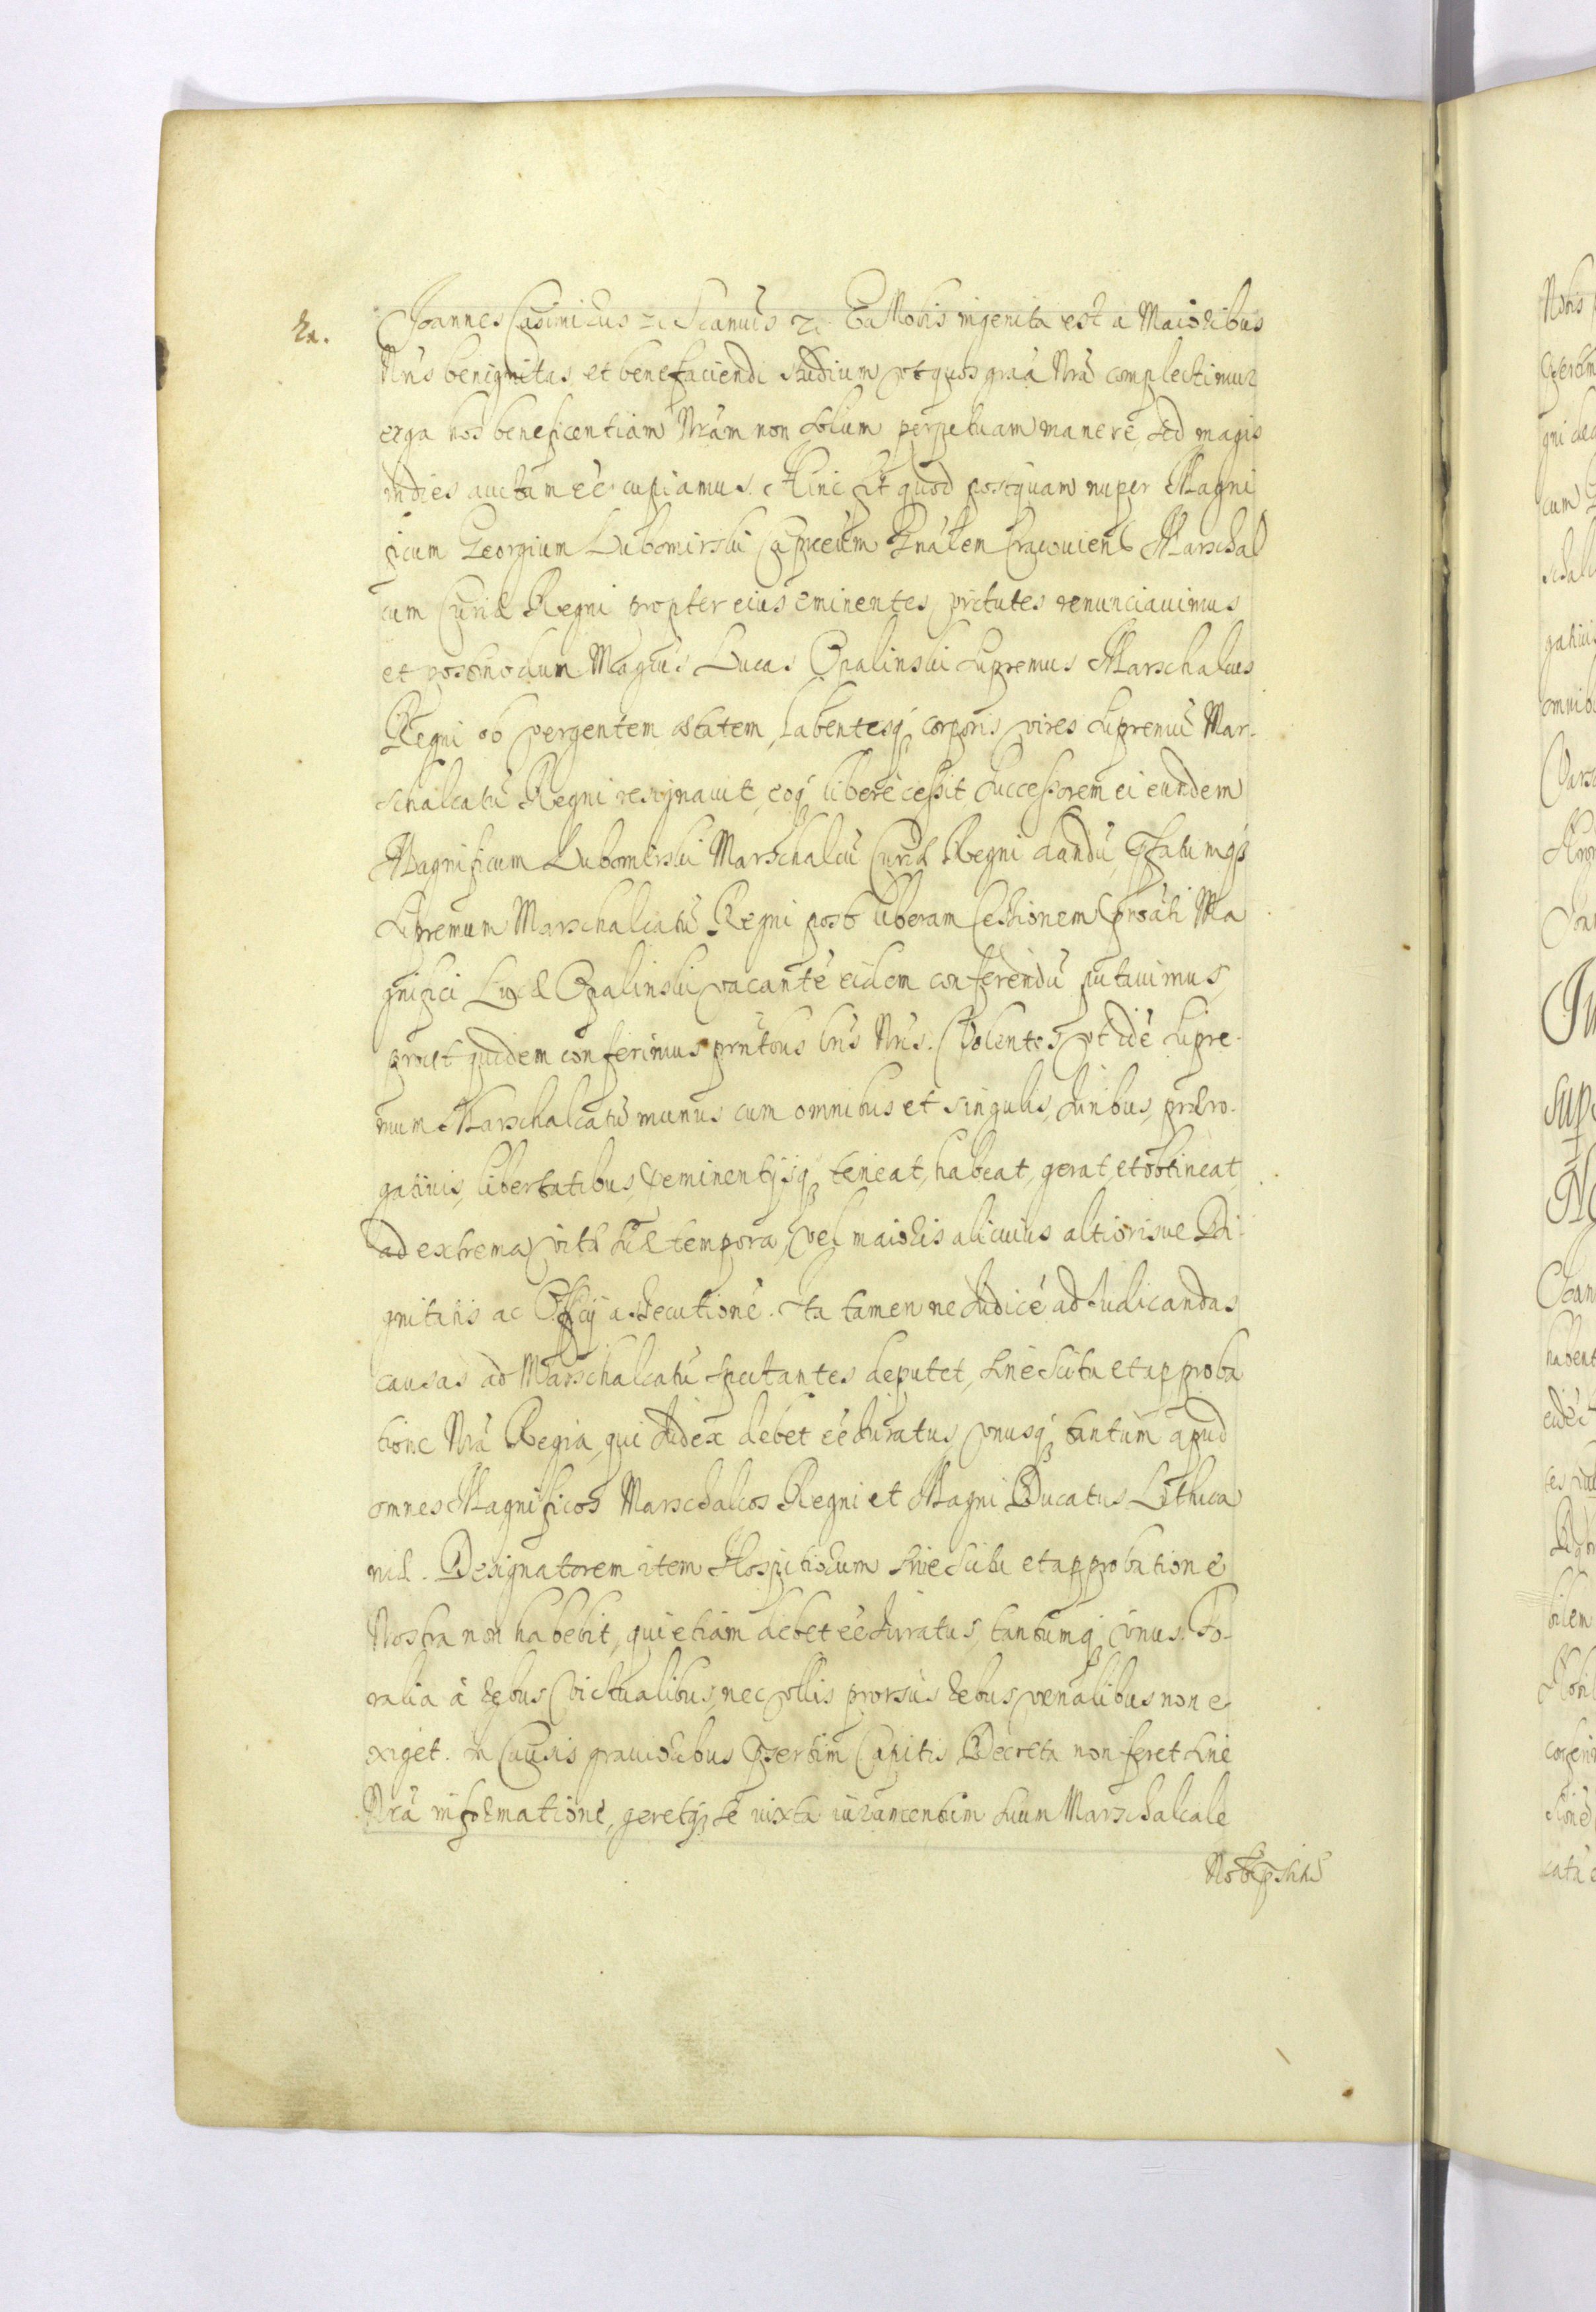 Joannes Casimirus &c Scanuis &c. Ea Nobis ingenita est a Maioribus
Nris benignitas et benefaciendi studium vt quos graa Nra complectimur
erga hos beneficentiam Nram non solum perpetuam manere, sed magis
indies auctam eê cupiamus. Hinc fit quod postquam nuper Magni
ficum Georgium Lubomirski Capneum Gnalem Cracouiens Marschal
cum Curiæ Regni propter eius eminentes virtutes renunciauimus
et postmodum Magcus Lucas Opalinski Supremus Marschalcus
Regni ob vergentem ætatem, labentesq corporis vires Supremu Mar-
schalcatu Regni resignauit, eoq libere cessit Successorem ei eundem
Magnificum Lubomirski Marschalcu Curiæ Regni dandu, 
Supremum Marschalcatu Regni post liberam Cessionem Ma
gnifici Lucæ Opalinski vacante eidem conferendu putauimus,
prout quidem conferimus prntbus lris Nris. Volentes vt ide Supre-
mum Marschalcatu munus cum omnibus et singulis, Juribus, præro-
gatiuis, libertatibus, Peminentijsq teneat, habeat, gerat, et obtineat
ad extrema vitæ suæ tempora, vel maioris alicuius altiorisue Di-
gnitatis ac Officij assecutione. Ita tamen ne Judice ad Judicandas
causas ad Marschalcatu spectantes deputet, sine Scitu et approba
tione Nra Regia, qui Judex debet eê Juratus, vnusq tantum apud
omnes Magnificos Marschalcos Regni et Magni Ducatus Lithua
niæ. Designatorem item Hospitiorum sine Scitu et approbatione
Nostra non habebit, qui etiam debet eê Juratus, tantumq vnus. Fo-
ralia â rebus Victualibus, nec vllis prorsus rebus venalibus non e
xiget. In Causis grauioribus Psertim Capitis Decreta non feret sine
Nra informatione, geretq se iuxta iuramentum suum Marschalcale